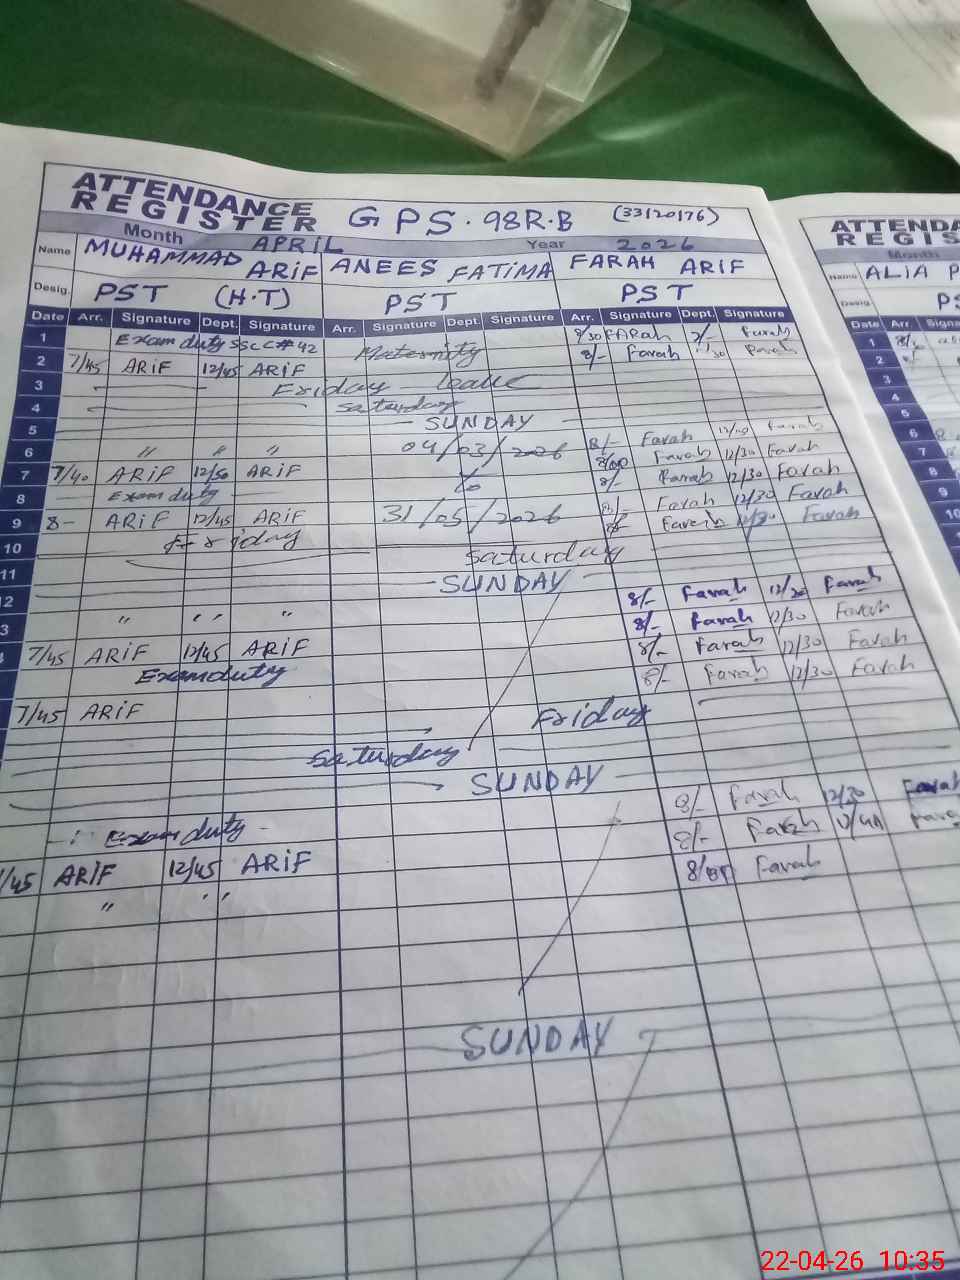 ATTENDANCE REGISTER GPS. 98R.B (33120176)
Month APRIL Year 2026
Name MUHAMMAD ARiF ANEES FATiMA FARAH ARiF
Desig. PST (H.T) PST PST
Date Arr. Signature Dept. Signature Arr. Signature Dept. Signature Arr. Signature Dept. Signature
1 Exam duty SSC C# 42 Maternity 8/30 FARah Farah
2 7/45 ARiF 12/45 ARiF 8/- Farah Farah
3 Friday leave
4 Saturday
5 SUNDAY
6 〃 〃 〃 04/03/2026 8/- Farah Farah
7 7/40 ARiF 12/50 ARiF to Farah 12/30 Farah
8 Exam duty 8/- Farah 12/30 Farah
9 8- ARiF 12/45 ARiF 31/05/2026 Farah 12/30 Farah
10 Friday Farah 12/30 Farah
11 Saturday
SUNDAY
〃 〃 〃 8/- Farah Farah
7/45 ARiF 12/45 ARiF 8/- Farah 12/30 Farah
Exam duty 8/- Farah 12/30 Farah
7/45 ARiF 8/- Farah 12/30 Farah
Friday
Saturday
SUNDAY
Exam duty 8/- Farah 12/30 Farah
/45 ARiF 12/45 ARiF 8/- Farah
〃 〃 Farah
SUNDAY
ATTENDA
REGIS
Month
Name ALIA
Desig. PS
Date Arr. Signa
1
2
3
4
5
6
7
8
9
10
22-04-26 10:35